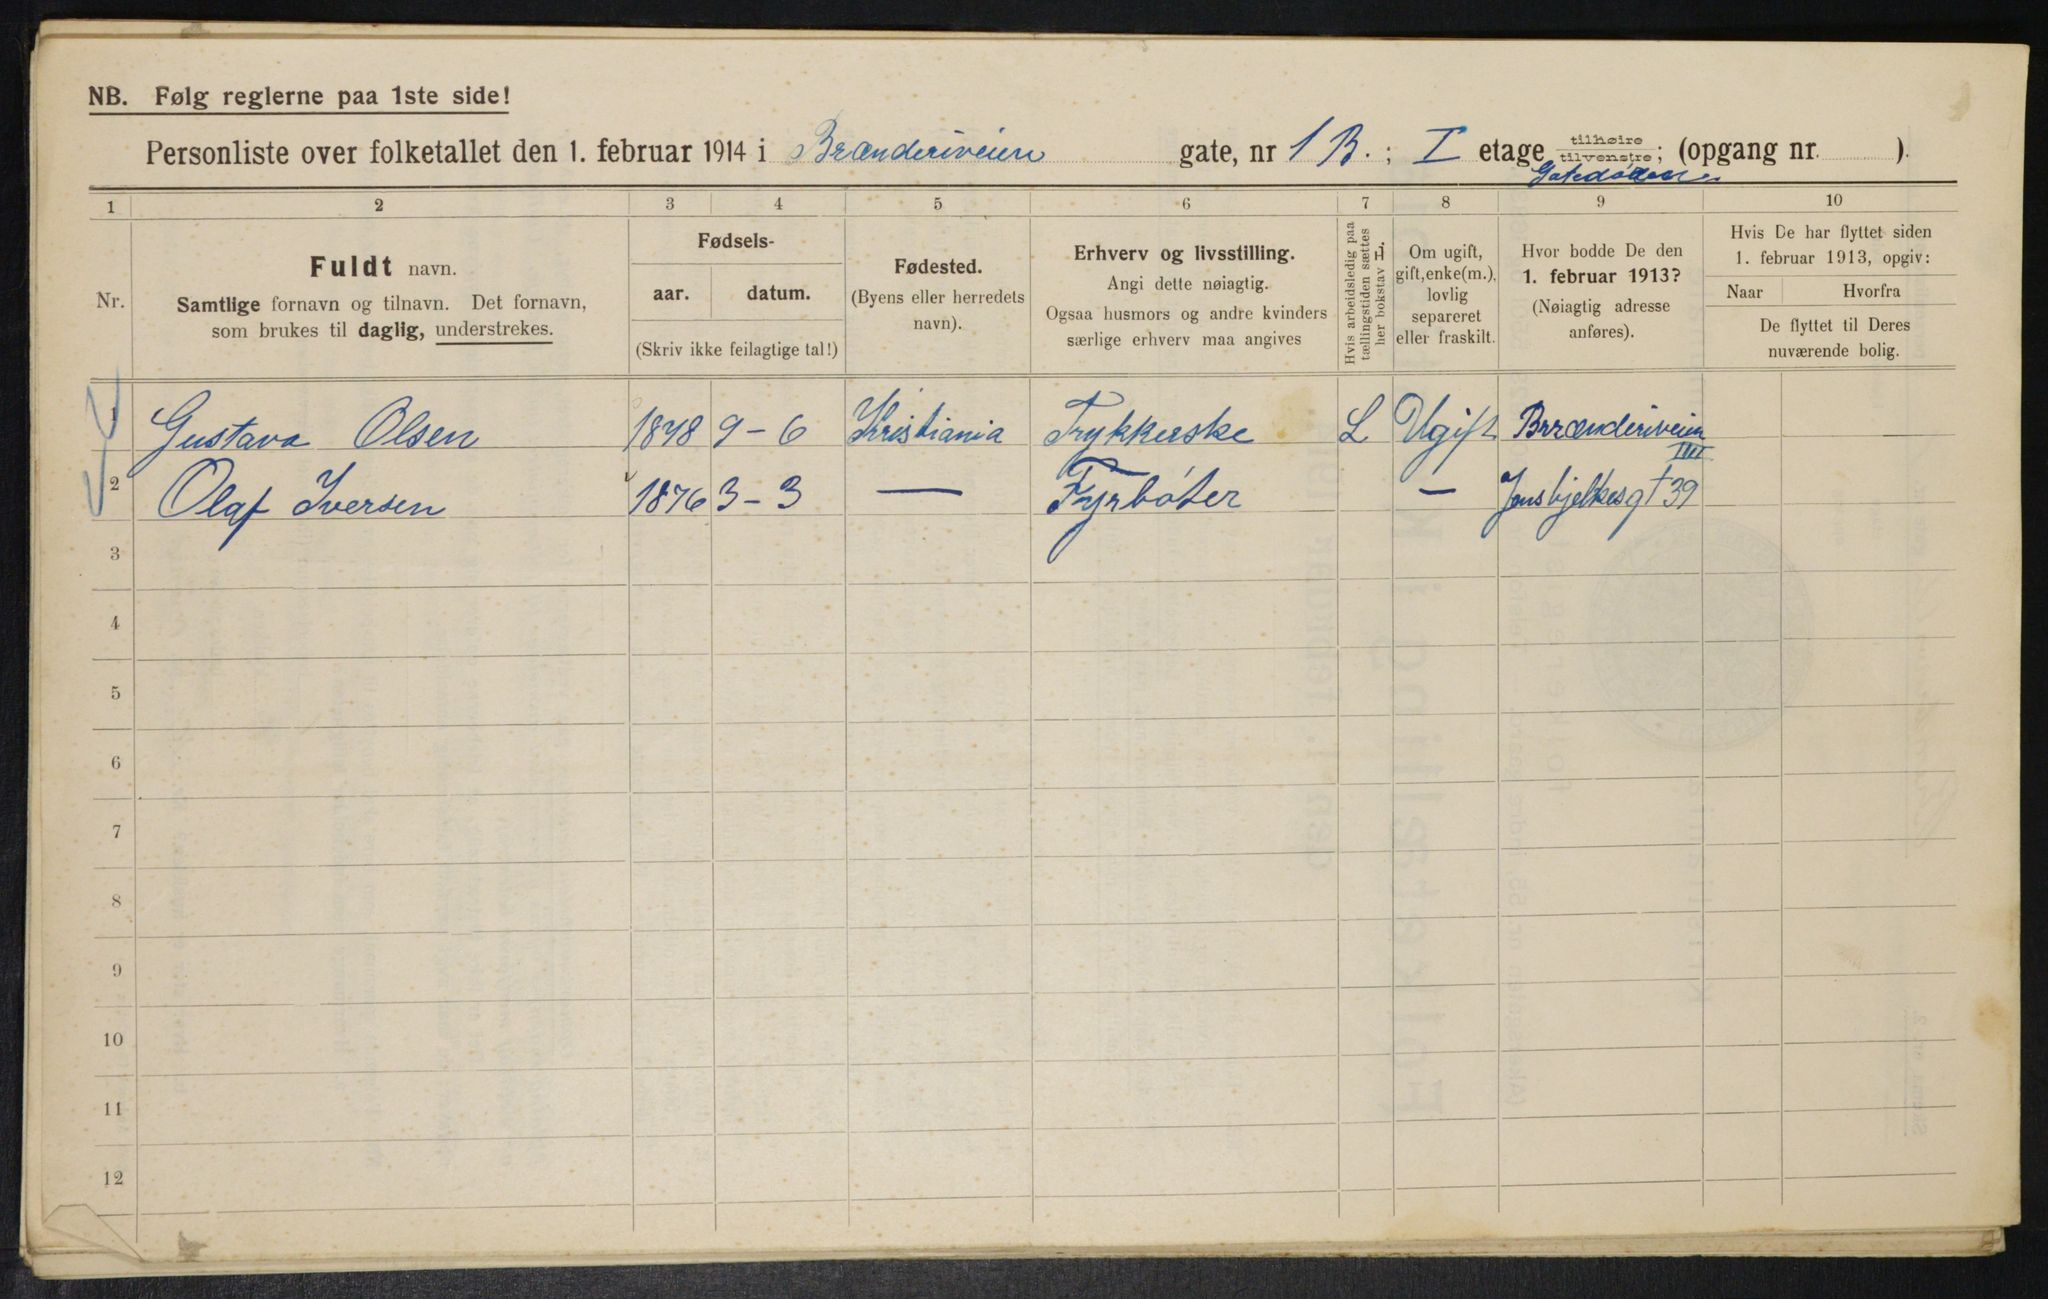 NB. Følg reglerne paa 1ste side!
Personliste over folketallet den 1. februar 1914 i Brænderiveien gate, nr 1 B. ; I etage tilhøire tilvenstre ; (opgang nr. ).
1 2 3 4 5 6 7 8 9 10
Nr.
Fuldt navn.
Samtlige fornavn og tilnavn. Det fornavn,
som brukes til daglig, understrekes.
Fødsels-
aar. datum.
(Skriv ikke feilagtige tal!)
Fødested.
(Byens eller herredets
navn).
Erhverv og livsstilling.
Angi dette nøiagtig.
Ogsaa husmors og andre kvinders
særlige erhverv maa angives
Hvis arbeidsledig paa
tællingstiden sættes
her bokstav L.
Om ugift,
gift, enke(m.),
lovlig
separeret
eller fraskilt.
Hvor bodde De den
1. februar 1913?
(Nøiagtig adresse
anføres).
Hvis De har flyttet siden
1. februar 1913, opgiv:
Naar Hvorfra
De flyttet til Deres
nuværende bolig.
1 Gustava Olsen 1878 9-6 Kristiania Trykkerske L Ugift Brrænderiveien
IIII
2 Olaf Iversen 1876 3-3 — Fyrbøter — Jensbjelkesgt 39
3
4
5
6
7
8
9
10
11
12